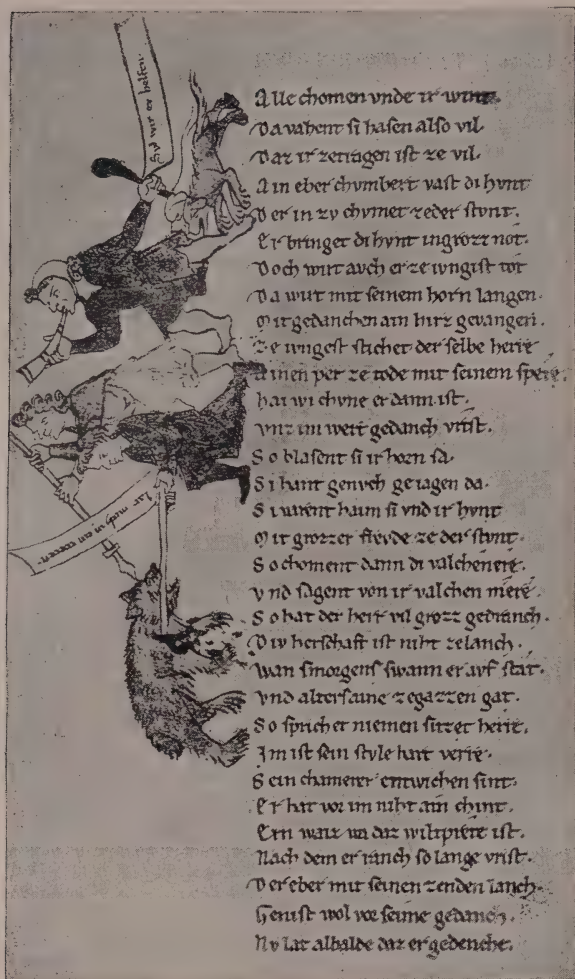 Alle chomen vnde ir wint.
Da vahent si hasen also vil.
Daz ir zetragen ist ze vil.
Ain eber chvmbert vast di hvnt
Der in zv chvmet zeder stvnt.
Er bringet di hvnt in grozz not.
Doch wirt avch er ze ivngist tot
Da wirt mit seinem horn langen.
Mit gedanchen ain hirz gevangen.
Ze ivngest stichet der selbe herre
Ainen per ze tode mit seinem spere.
hai wi chvne er dann ist.
vnz im wert gedanch vrist.
So blasent si ir horn sa.
Si hant genvch geiagen da.
Si varent haim si vnd ir hvnt
Mit grozzer frevde ze der stvnt.
So choment dann di valchenere.
vnd sagent von ir valchen mere.
So hat der herr vil grozz gedranch.
Div herschaft ist niht zelanch.
wan smorgens swann er avf stat.
vnd altersaine zegazzen gat.
So sprichet niemen sitzet herre.
Im ist sein style hart verre.
Sein chamerer entwichen sint.
Er hat vor im niht ain chint.
Ern waiz wa daz wiltprete ist.
Nach dem er ranch so lange vrist.
Der eber mit seinen zenden lanch.
Genist wol vor seime gedanch.
Nv lat albalde daz er gedenche.
Hie wir er helfen.